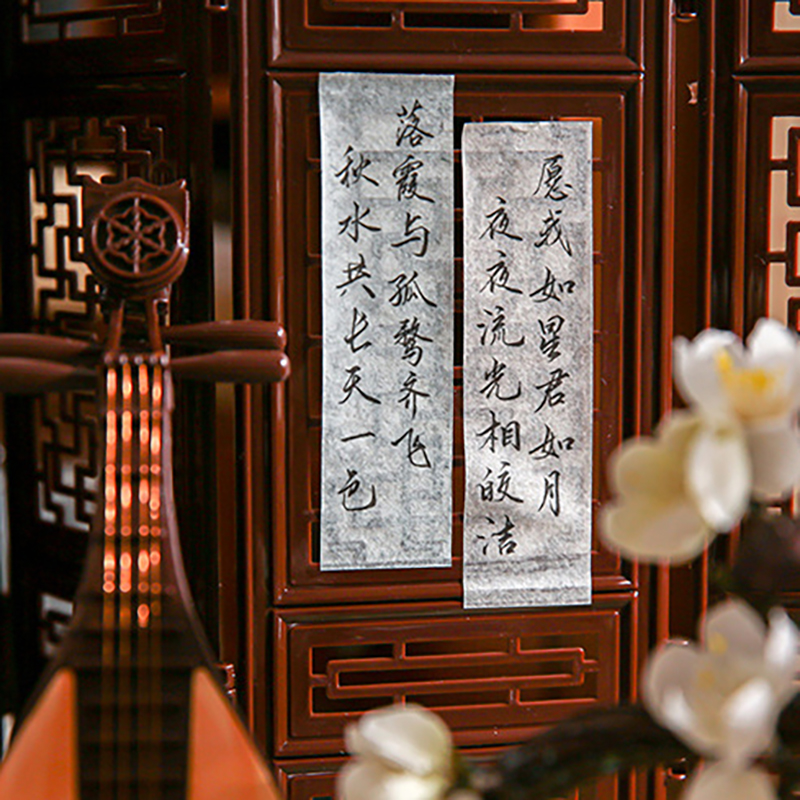 愿我如星君如月
夜夜流光相皎洁
落霞与孤鹜齐飞
秋水共长天一色